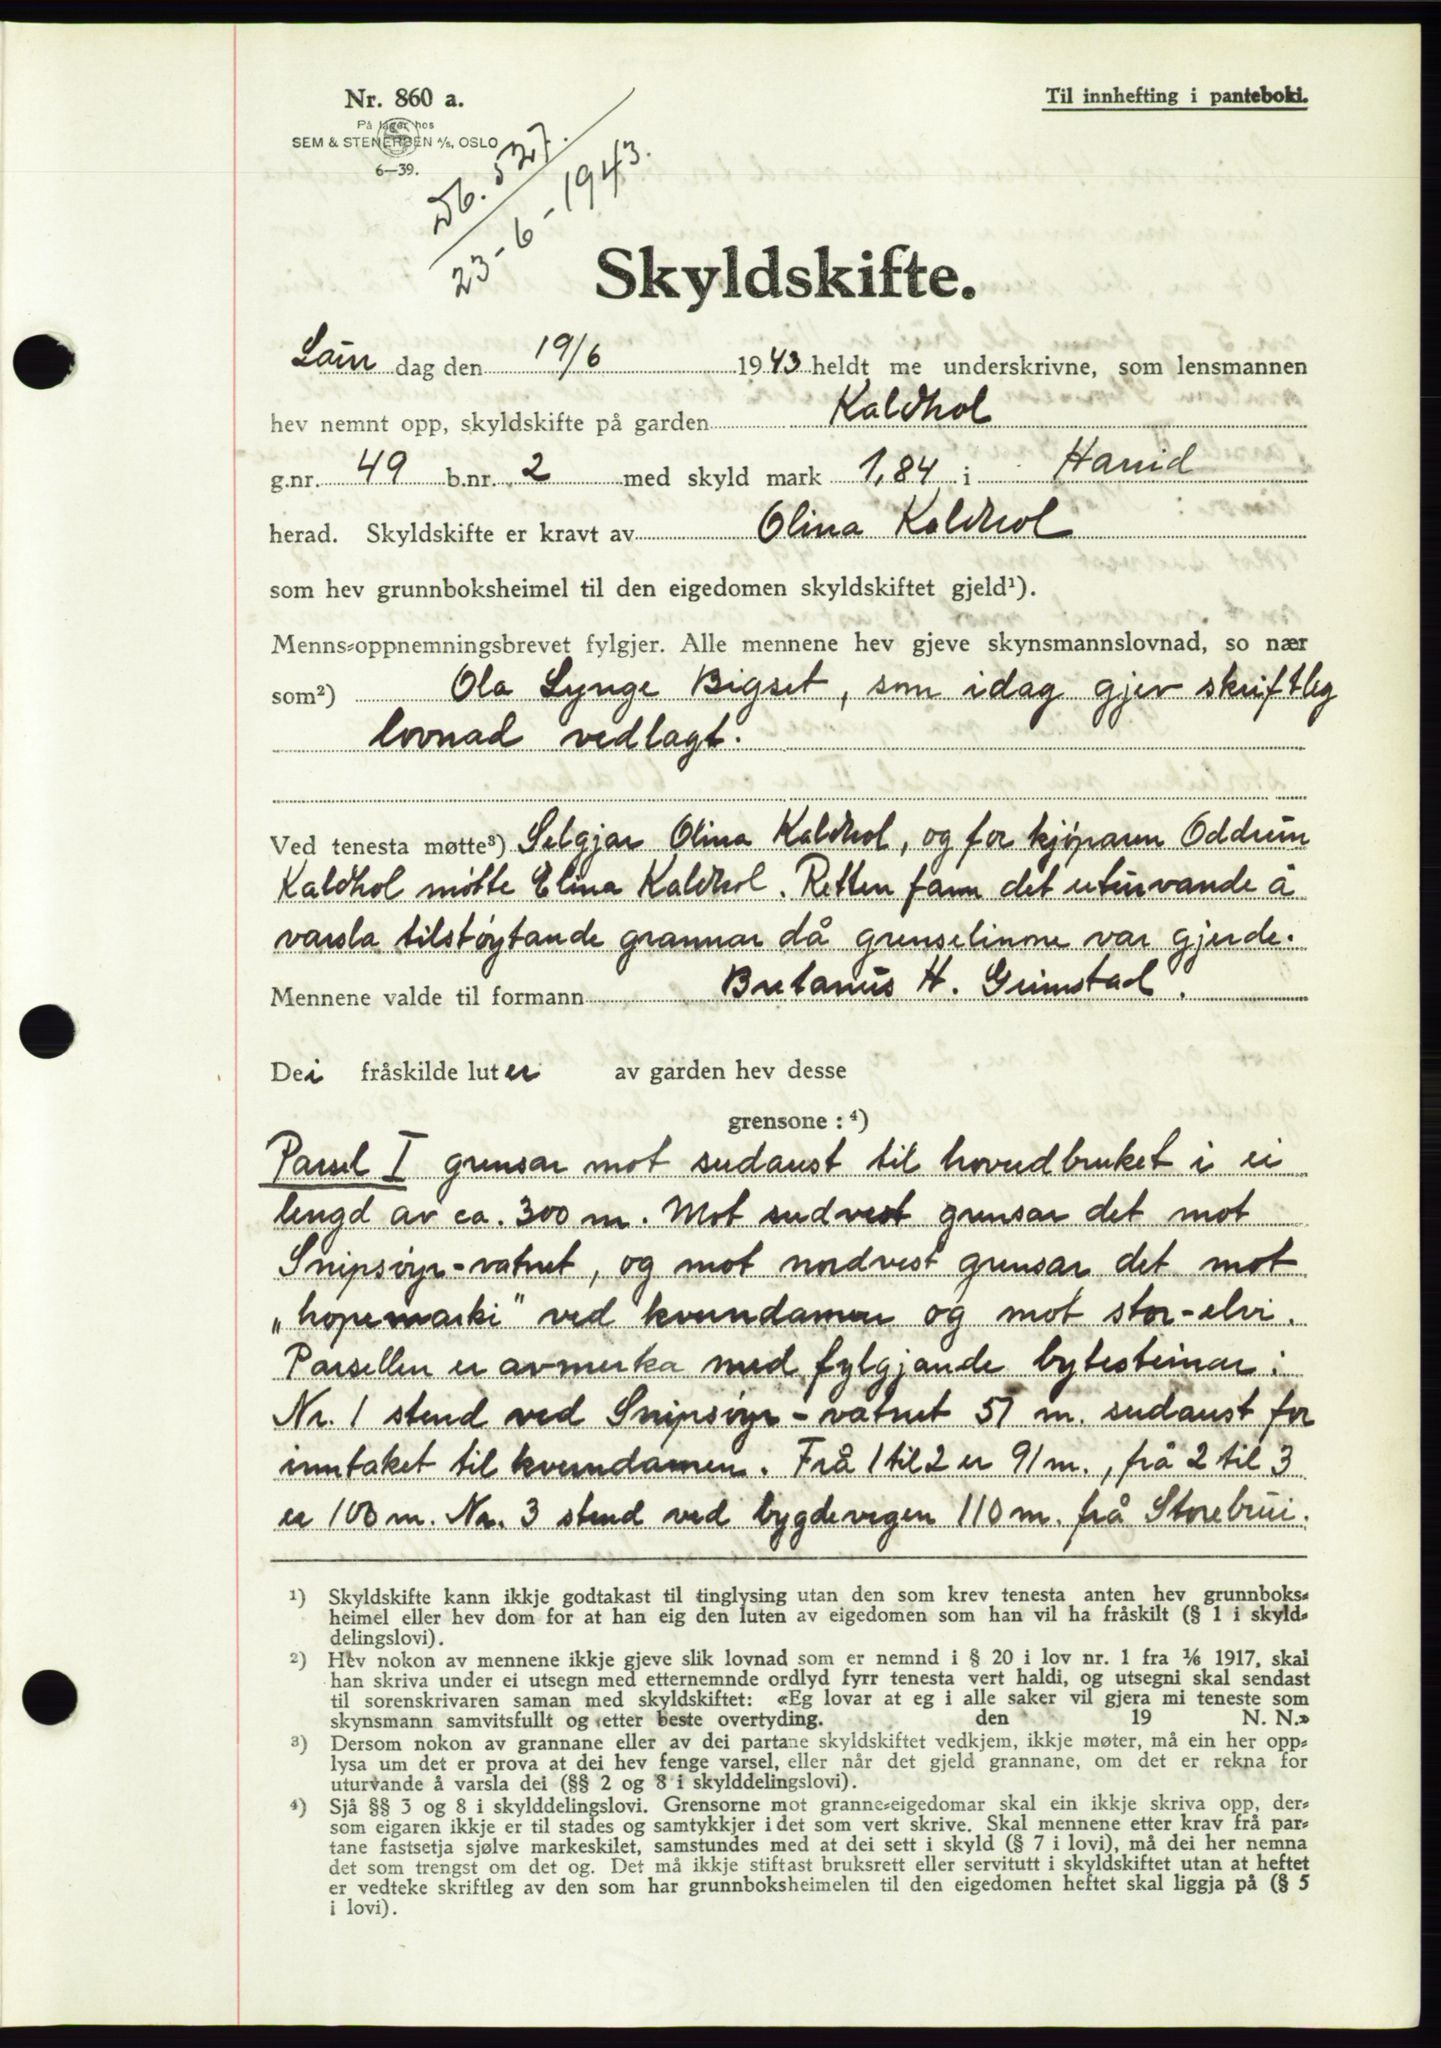 Nr. 860 a.
På lager hos
SEM & STENERSEN A/S, OSLO
6—39.
Til innhefting i panteboki.
Db. 527.
23-6-1943.
Skyldskifte.
Laur dag den 19/6 1943 heldt me underskrivne, som lensmannen
hev nemnt opp, skyldskifte på garden Kaldhol
g.nr. 49 b.nr. 2 med skyld mark 1,84 i Hareid
herad. Skyldskifte er kravt av Olina Kaldhol
som hev grunnboksheimel til den eigedomen skyldskiftet gjeld¹).
Menns-oppnemningsbrevet fylgjer. Alle mennene hev gjeve skynsmannslovnad, so nær
som²) Ola Lynge Bigset, som idag gjev skriftleg
lovnad vedlagt.
Ved tenesta møtte³) Seljar Olina Kaldhol, og for kjöparen Oddrun
Kaldhol møtte Elina Kaldhol. Retten fann det uturvande å
varsla tilstøytande grannar då grenselinone var gjerde.
Mennene valde til formann Bretanus H. Grimstad.
Dei fråskilde luter av garden hev desse
grensone : ⁴)
Parsel I grensar mot sudaust til hovudbruket i ei
lengd av ca. 300 m. Mot sudvest grensar det mot
Snipsöyr-vatnet, og mot nordvest grensar det mot
„hopemarki" ved kverndamen og mot stor-elvi.
Parsellen er avmerka med fylgjande bytesteinar:
Nr. 1 stend ved Snipsöyr-vatnet 57 m. sudaust for
inntaket til kverndamen. Frå 1 til 2 er 91 m., frå 2 til 3
er 100 m. Nr. 3 stend ved bygdevegen 110 m. frå Storebrui.
¹) Skyldskifte kann ikkje godtakast til tinglysing utan den som krev tenesta anten hev grunnboks-
heimel eller hev dom for at han eig den luten av eigedomen som han vil ha fråskilt (§ 1 i skyld-
delingslovi).
²) Hev nokon av mennene ikkje gjeve slik lovnad som er nemnd i § 20 i lov nr. 1 fra 1/6 1917, skal
han skriva under ei utsegn med etternemnde ordlyd fyrr tenesta vert haldi, og utsegni skal sendast
til sorenskrivaren saman med skyldskiftet: «Eg lovar at eg i alle saker vil gjera mi teneste som
skynsmann samvitsfullt og etter beste overtyding. den 19 N. N.»
³) Dersom nokon av grannane eller av dei partane skyldskiftet vedkjem, ikkje møter, må ein her opp-
lysa um det er prova at dei hev fenge varsel, eller når det gjeld grannane, om det er rekna for
uturvande å varsla dei (§§ 2 og 8 i skylddelingslovi).
⁴) Sjå §§ 3 og 8 i skylddelingslovi. Grensorne mot granne-eigedomar skal ein ikkje skriva opp, der-
som eigaren ikkje er til stades og samtykkjer i det som vert skrive. Skal mennene etter krav frå par-
tane fastsetja sjølve markeskilet, samstundes med at dei sett i skyld (§ 7 i lovi), må dei her nemna
det som trengst om det og. Det må ikkje stiftast bruksrett eller servitutt i skyldskiftet utan at heftet
er vedteke skriftleg av den som har grunnboksheimelen til den eigedomen heftet skal liggja på (§ 5
i lovi).